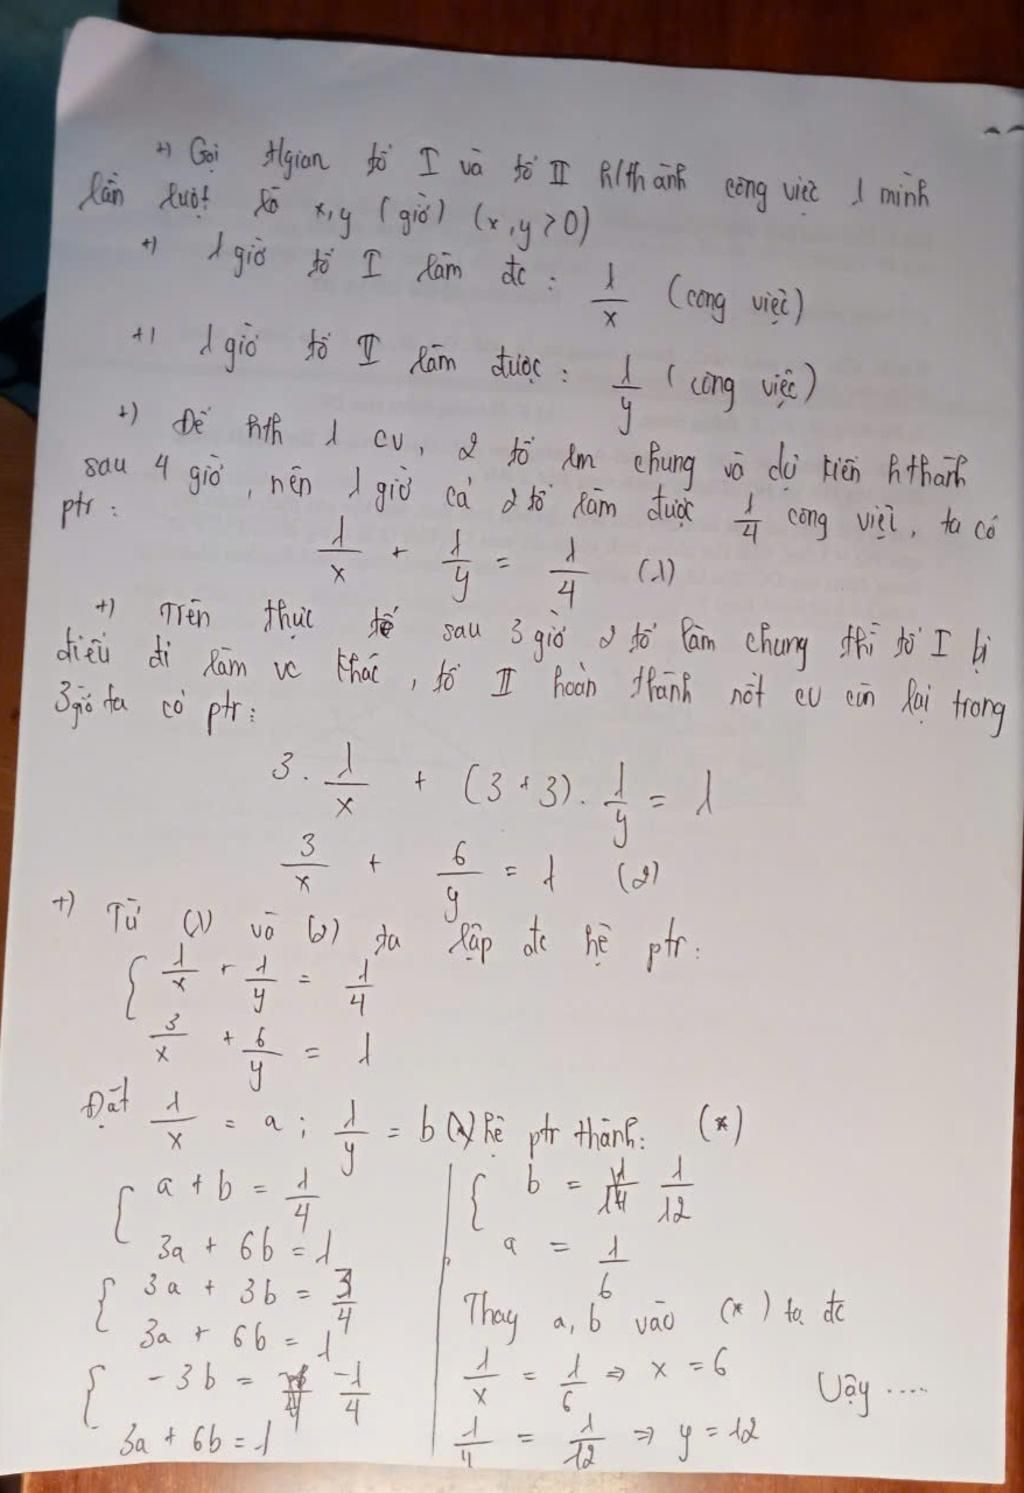 +) Gọi tgian tổ I và tổ II h/thành công việc 1 mình
lần lượt là x, y (giờ) (x, y > 0)
+) 1 giờ tổ I làm đc : 1/x (công việc)
+) 1 giờ tổ II làm được : 1/y (công việc)
+) Để hth 1 cv, 2 tổ lm chung và dự kiến hthành
sau 4 giờ, nên 1 giờ cả 2 tổ làm được 1/4 công việc, ta có
ptr :
1/x + 1/y = 1/4 (1)
+) Trên thực tế sau 3 giờ 2 tổ làm chung thì tổ I bị
điều đi làm vc khác, tổ II hoàn thành nốt cv còn lại trong
3 giờ ta có ptr :
3 . 1/x + (3 + 3) . 1/y = 1
3/x + 6/y = 1 (2)
+) Từ (1) và (2) ta lập đc hệ ptr :
{ 1/x + 1/y = 1/4
3/x + 6/y = 1
Đặt 1/x = a ; 1/y = b hệ ptr thành: (*)
{ a + b = 1/4
3a + 6b = 1
{ 3a + 3b = 3/4
3a + 6b = 1
{ -3b = -1/4
3a + 6b = 1
{ b = 1/12
a = 1/6
Thay a, b vào (*) ta đc
1/x = 1/6 => x = 6
1/y = 1/12 => y = 12
Vậy ....